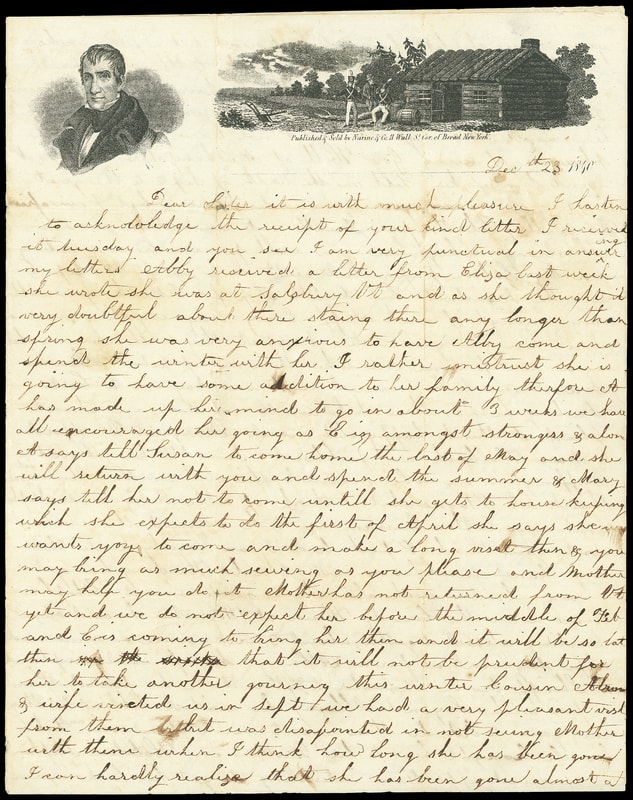 Published & Sold by Narine & Co. 11 Wall St. Cor. of Broad New York
Dec th 23 1840
Dear Sister it is with much pleasure I hasten
to acknowledge the receipt of your kind letter I received
it tuesday and you see I am very punctual in answering
my letters Abby received a letter from Eliza last week
she wrote she was at Salsbury Vt and as she thought it
very doubtful about there staing there any longer than
spring she was very anxious to have Abby come and
spend the winter with her I rather mistrust she is
going to have some addition to her family therfore A
has made up her mind to go in about 3 weeks we have
all encouraged her going as E is amongst strangers & alon
A says tell Susan to come home the last of May and she
will return with you and spend the summer & Mary
says tell her not to come untill she gets to house keeping
which she expects to do the first of April she says she
wants you to come and make a long visit then & you
may bring as much sewing as you please and Mother
may help you do it Mother has not returned from Vt
yet and we do not expect her before the middle of Feb
and E is coming to bring her then and it will be so lat
then that it will not be prudent for
her to take another journey this winter Cousin
& wife visited us in sept we had a very pleasant visit
from them but was disapointed in not seeing Mother
with them when I think how long she has been gone
I can hardly realize that she has been gone almost a